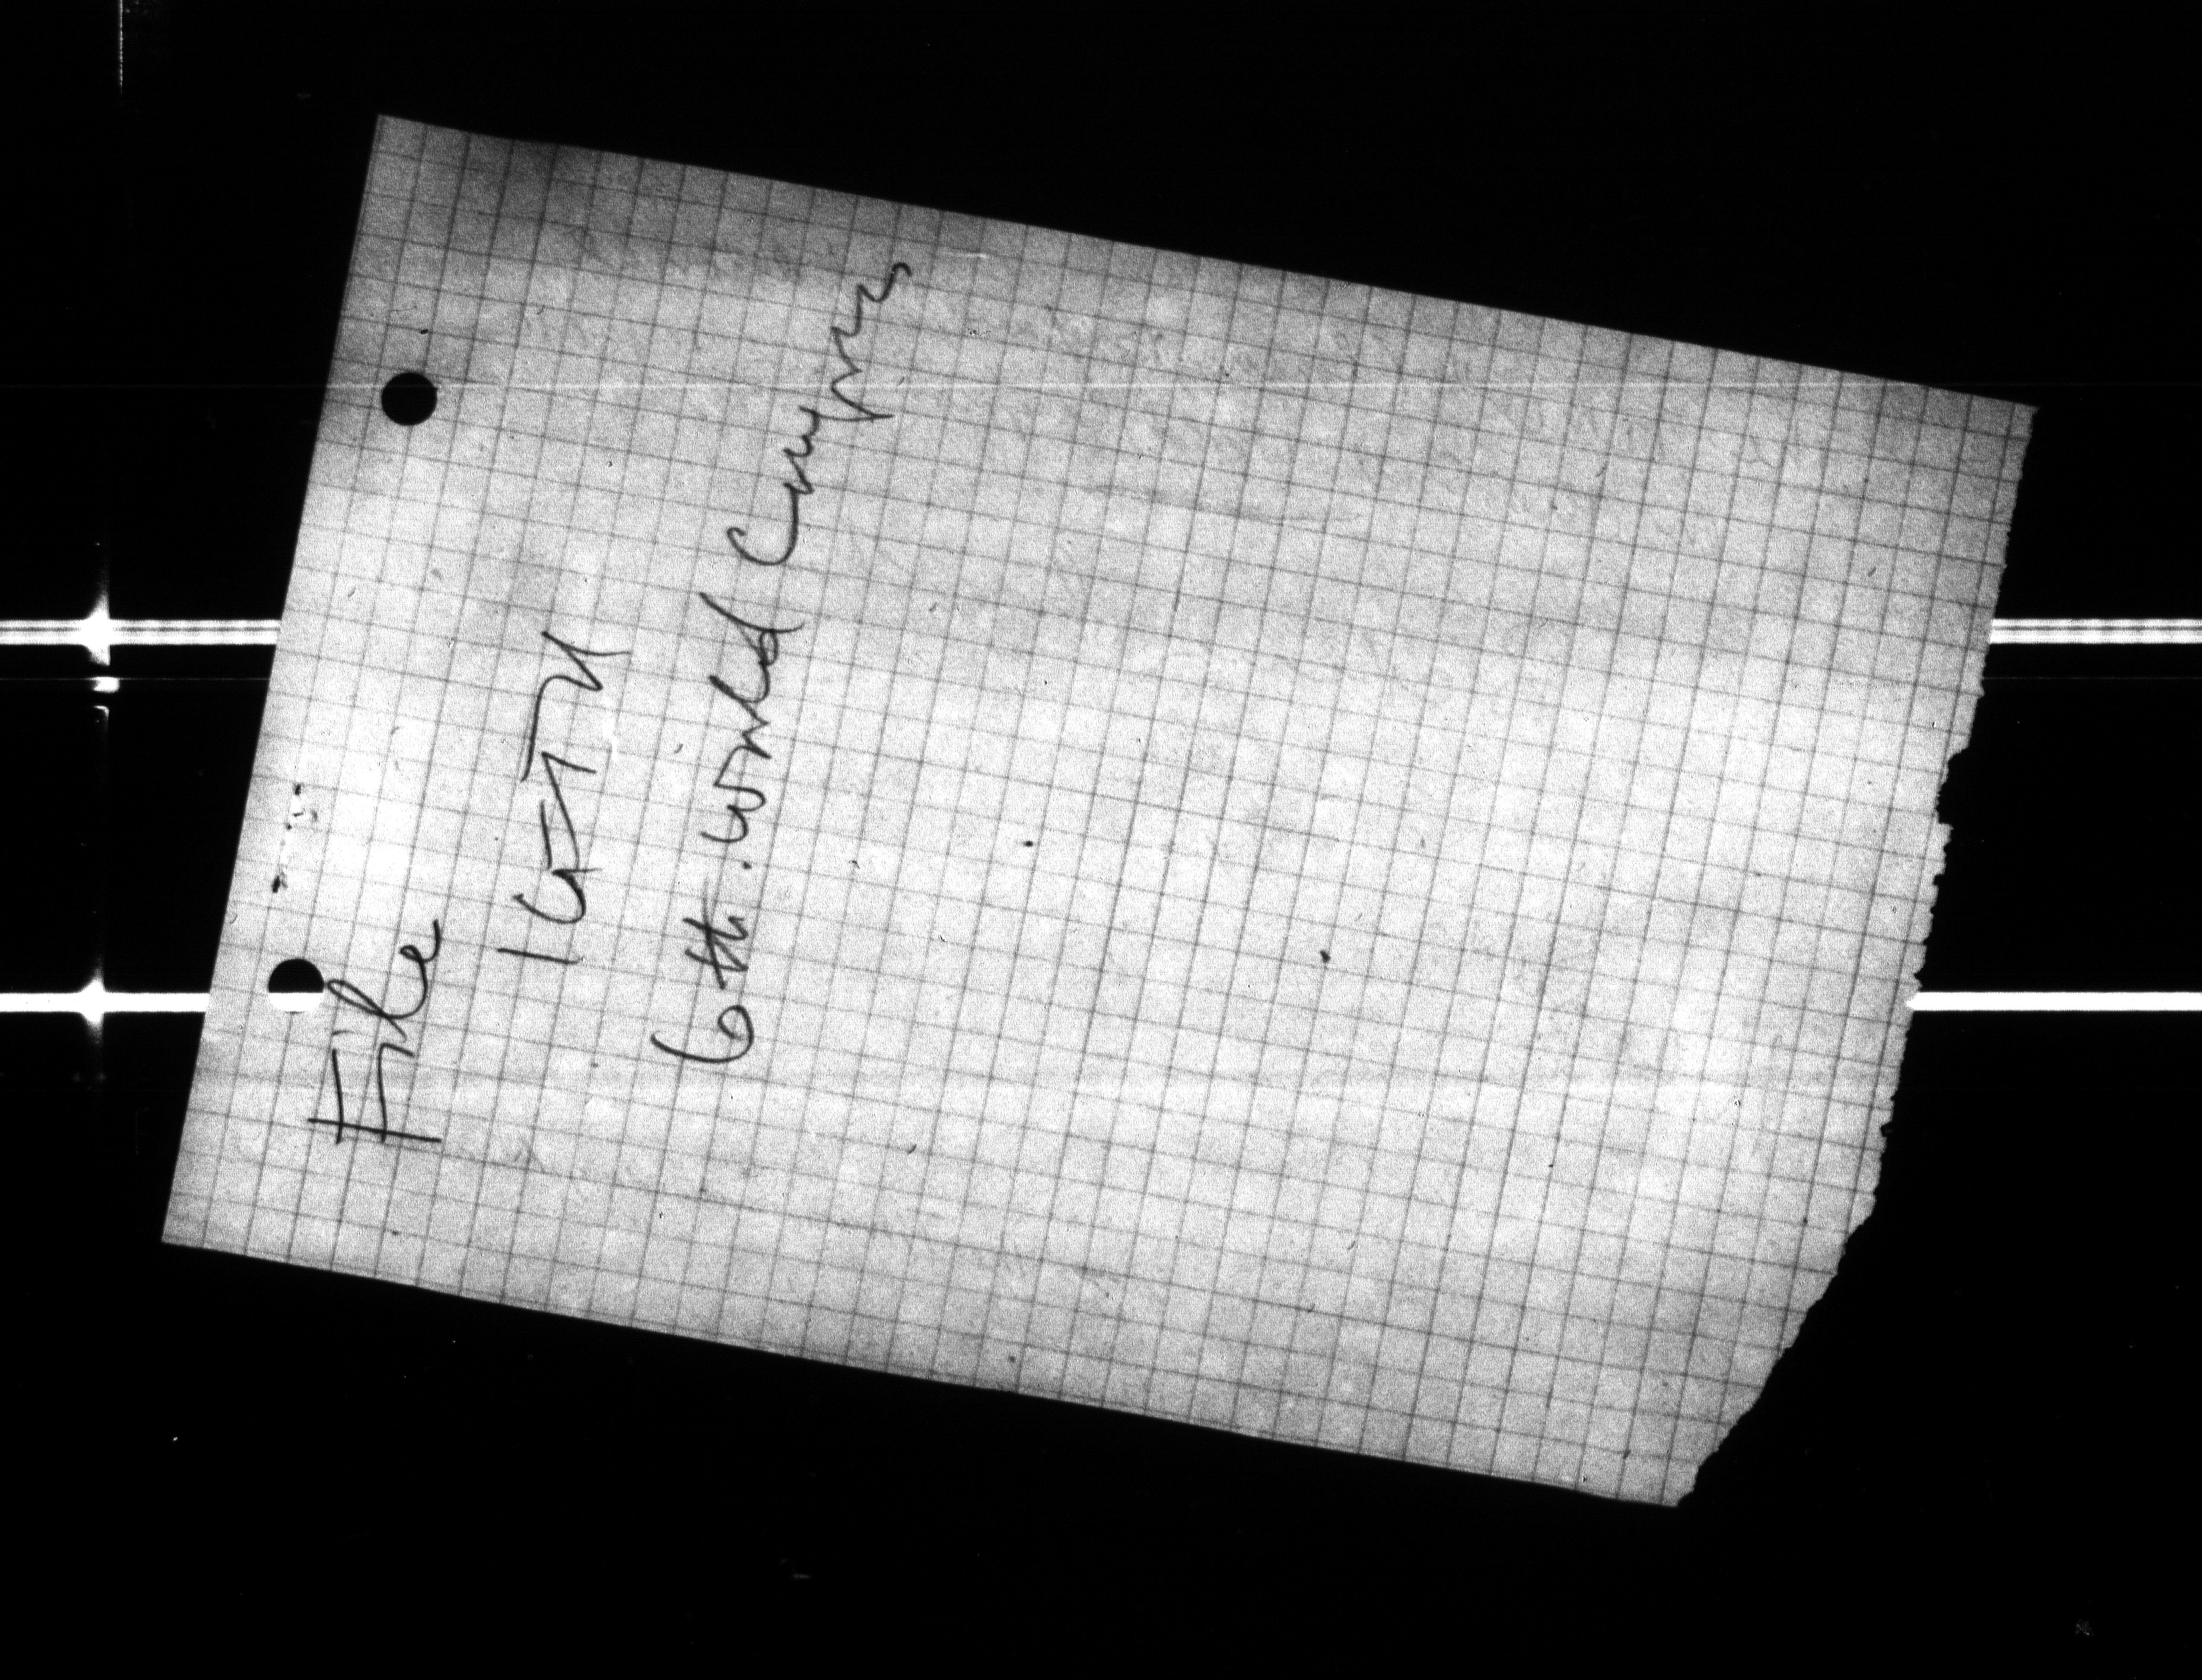 File
6th. World Congress